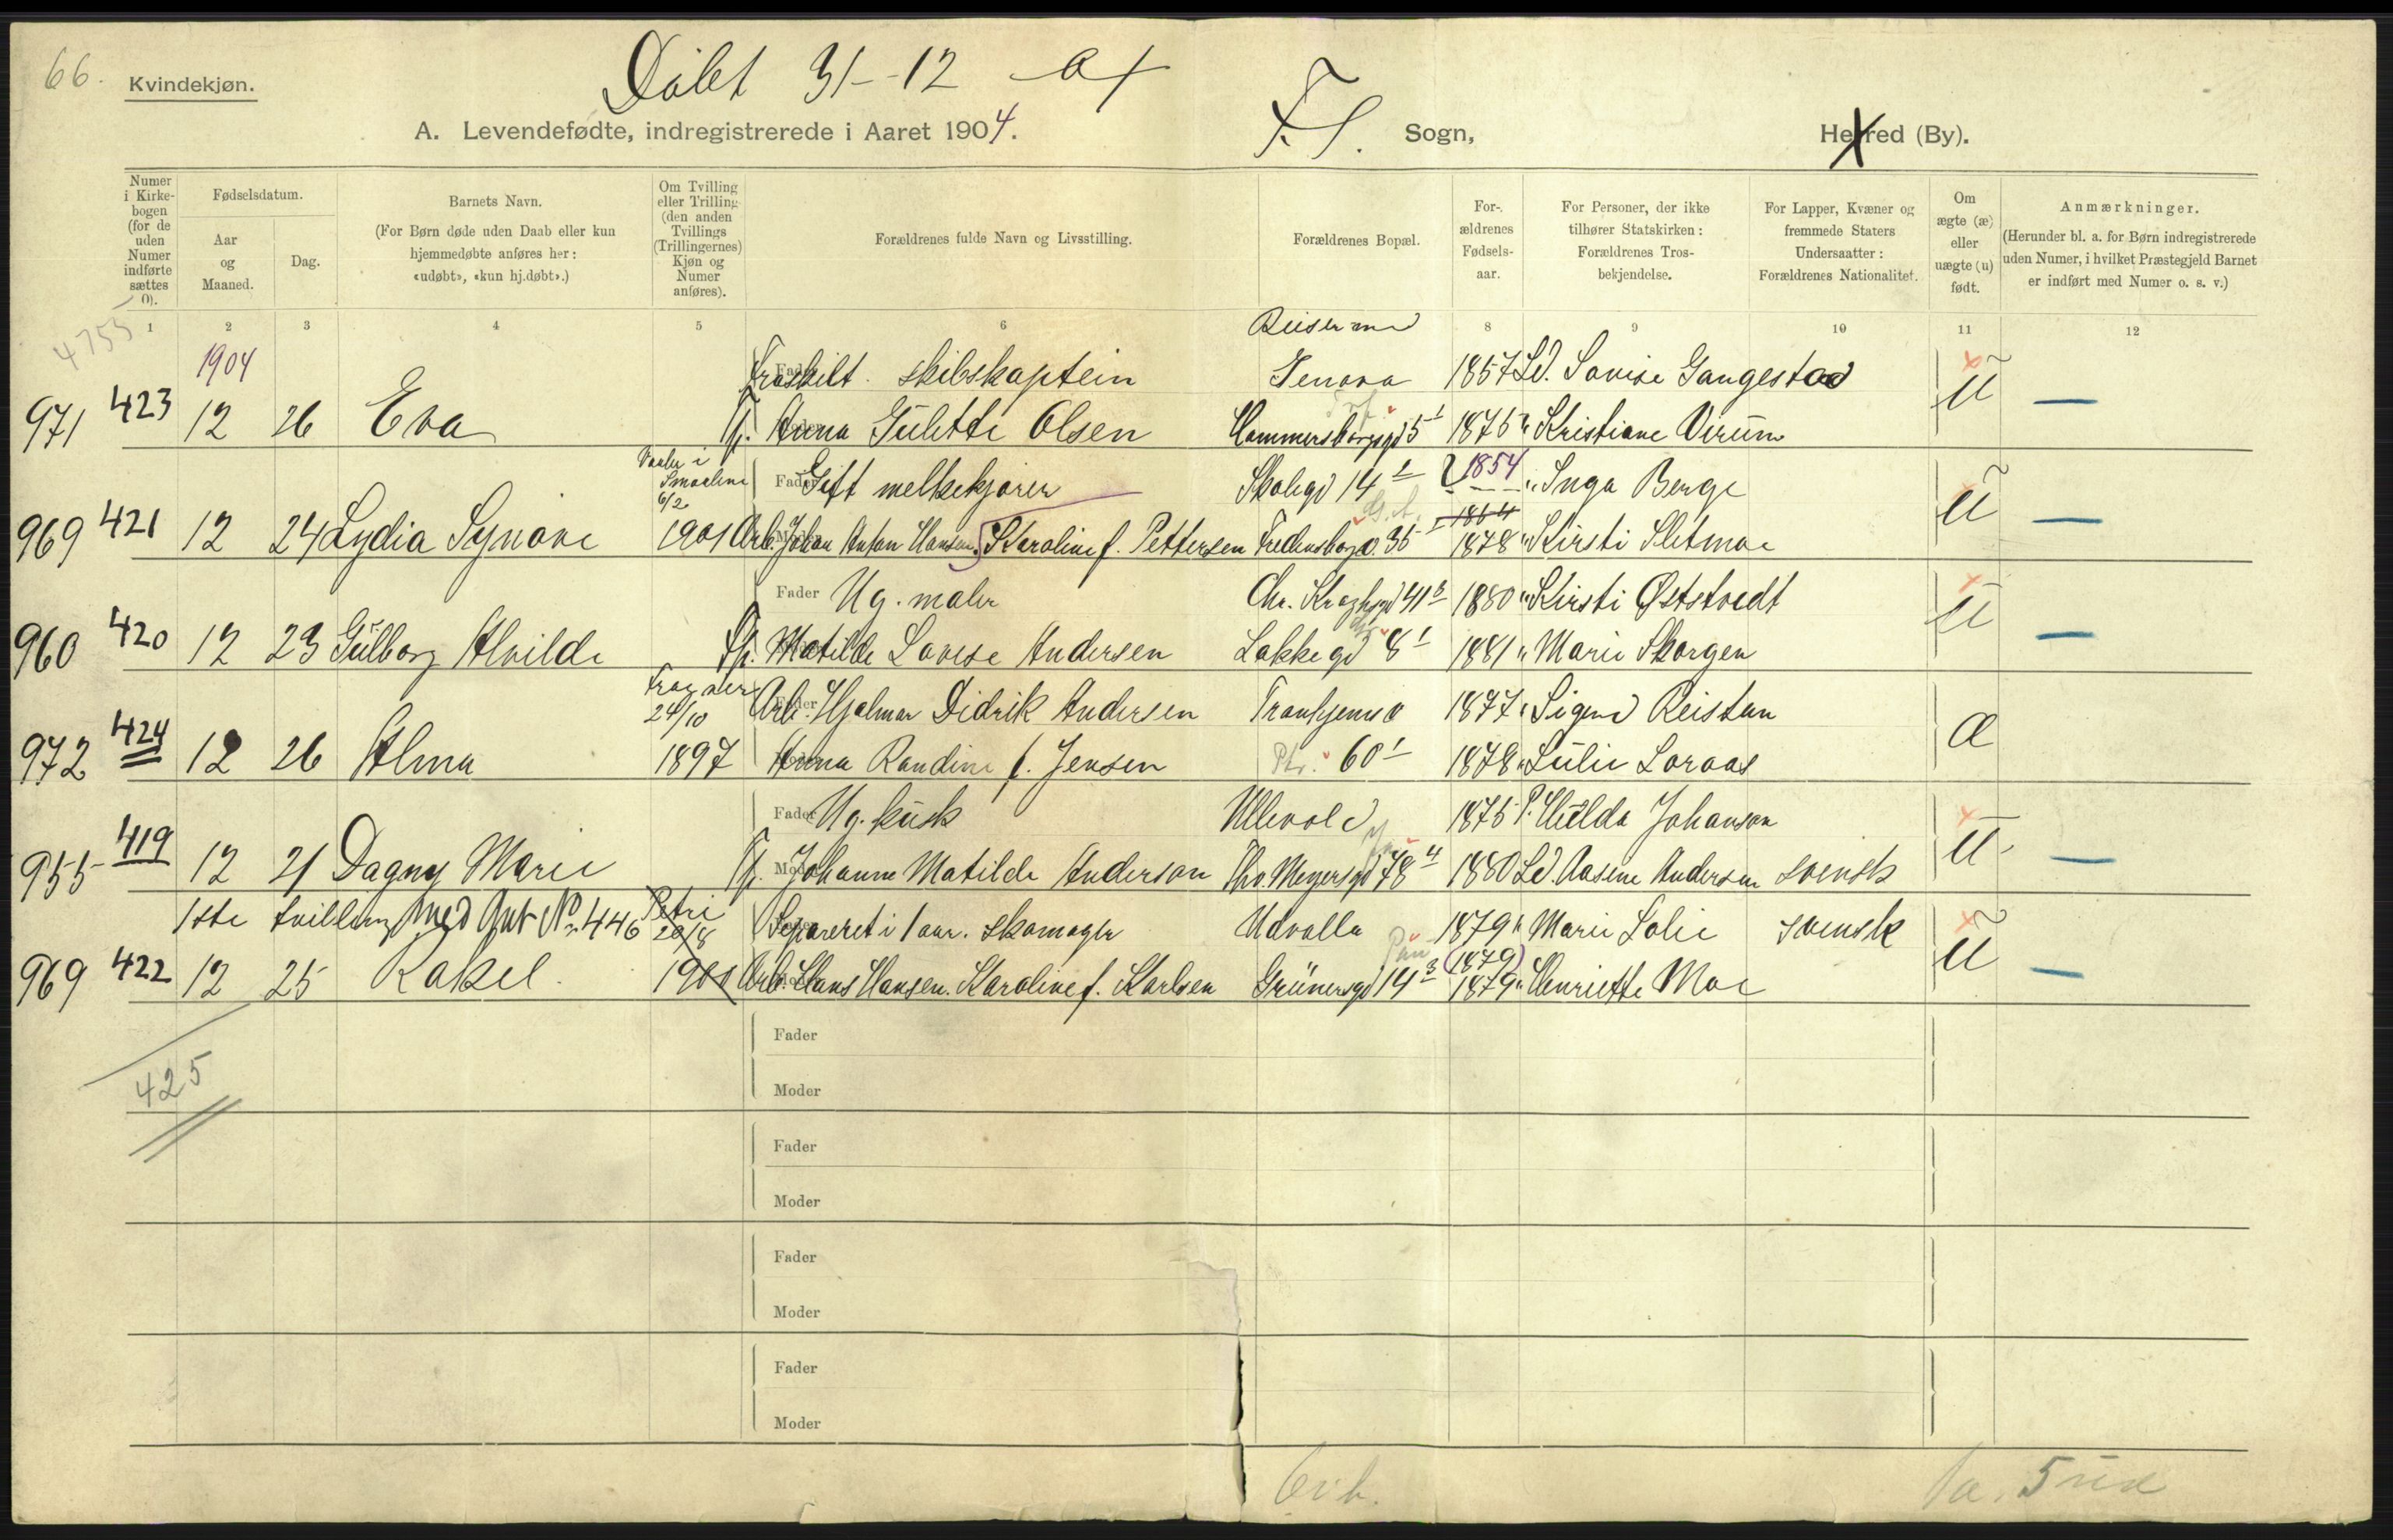 66. Kvindekjøn.
Døbt 31-12 04
A. Levendefødte, indregistrerede i Aaret 1904. F. S. Sogn, Herred (By).
Numer i Kirkebogen (for de uden Numer indførte sættes 0).
Fødselsdatum.
Aar og Maaned.
Dag.
Barnets Navn.
(For Børn døde uden Daab eller kun hjemmedøbte anføres her: «udøbt», «kun hj.døbt».)
Om Tvilling eller Trilling (den anden Tvillings (Trillingernes) Kjøn og Numer anføres).
Forældrenes fulde Navn og Livsstilling.
Forældrenes Bopæl.
For-ældrenes Fødsels-aar.
For Personer, der ikke tilhører Statskirken: Forældrenes Tros-bekjendelse.
For Lapper, Kvæner og fremmede Staters Undersaatter: Forældrenes Nationalitet.
Om ægte (æ) eller uægte (u) født.
Anmærkninger.
(Herunder bl. a. for Børn indregistrerede uden Numer, i hvilket Præstegjeld Barnet er indført med Numer o. s. v.)
4755
1 2 3 4 5 6 8 9 10 11 12
Reiser med
1904 Fraskilt. skibskaptein Genova 1857 Ld. Lovise Gangestad
971 423 12 26 Eva Tj. Anna Gulette Olsen Hammersborggd 5 1 1875 " Kristiane Virum U
Vaaler i Smaalene 6/2 Fader Gift melkekjører Skolegd 14 1 1854 " Inga Berge
969 421 12 24 Lydia Synøve 1901 Arb. Johan Anton Hansen. Karoline f. Pettersen Fredensborgv. 35 1 1864 1878 " Kirsti Sletmoe U
Fader Ug. maler Chr. Kroghsgd 41 3 1880 " Kirsti Øststvedt
960 420 12 23 Gulborg Alvilde Tj. Matilde Lovise Andersen Lakkegd 8 1 1881 " Marie Skorgen U
Frogner 24/10 Arb. Hjalmar Didrik Andersen Tronhjemsv 1877 " Signe Reistan
972 424 12 26 Alma 1897 Anna Randine f. Jensen 60 1 1878 " Lulie Loraas Æ
Fader Ug. kusk Ullevold 1875 P. Hulda Johanson
955 419 12 21 Dagny Marie Tj. Johanne Matilde Anderson Thv. Meyersgd 78 4 1880 Ld. Aasene Anderson svensk U
1ste tvilling med Gut No 446 Petri 20/8 Separeret i 1 aar. skomager Udvalla 1879 " Marie Lolie svensk
969 422 12 25 Rakel. 1901 Arb. Hans Hansen. Karoline f. Karlsen Grünersgd 14 3 (1879) 1879 " Henriette Moe U
425
Fader
Moder
Fader
Moder
Fader
Moder
Fader
Moder